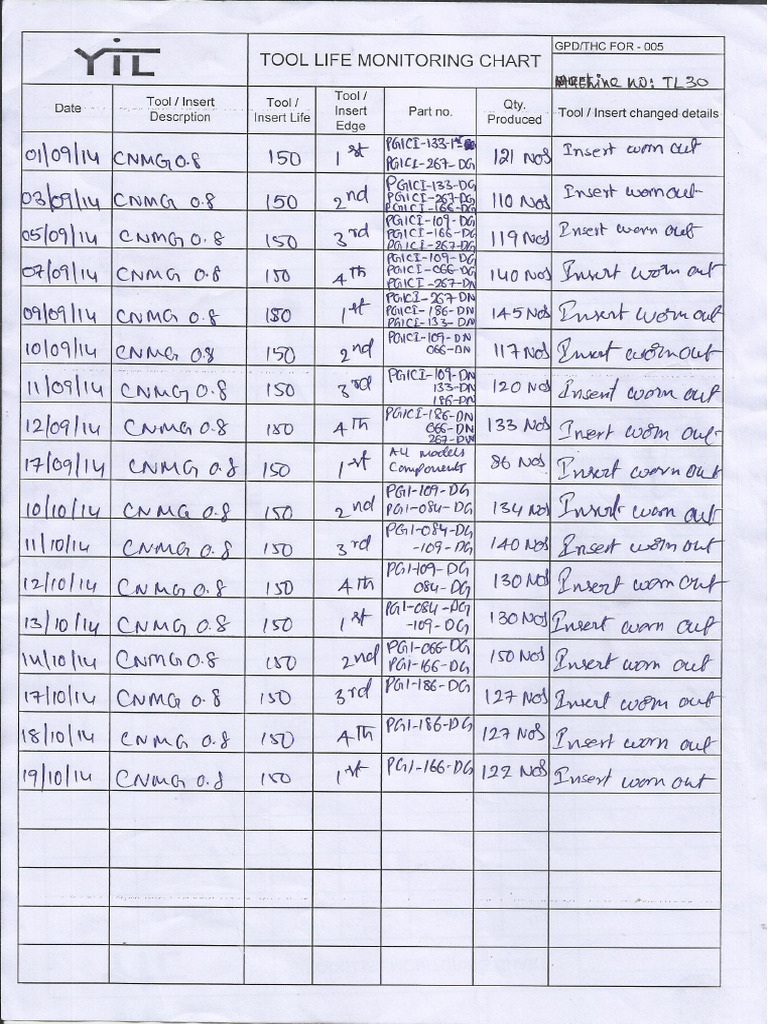 YIL
TOOL LIFE MONITORING CHART
GPD/THC FOR - 005
Machine NO: TL30
Date
Tool / Insert Descrption
Tool / Insert Life
Tool / Insert Edge
Part no.
Qty. Produced
Tool / Insert changed details
01/09/14 CNMG 0.8 150 1st PG1CI-133- PG1CI-267-DG 121 NOS Insert worn out
03/09/14 CNMG 0.8 150 2nd PG1CI-133-DG PG1CI-267-DG PG1CI-166-DG 110 NOS Insert worn out
05/09/14 CNMG 0.8 150 3rd PG1CI-109-DG PG1CI-166-DG PG1CI-267-DG 119 NOS Insert worn out
07/09/14 CNMG 0.8 150 4th PG1CI-109-DG PG1CI-066-DG PG1CI-267-DN 140 NOS Insert worn out
09/09/14 CNMG 0.8 150 1st PG1CI-267-DN PG1CI-186-DN PG1CI-133-DN 145 NOS Insert worn out
10/09/14 CNMG 0.8 150 2nd PG1CI-109-DN 066-DN 117 NOS Insert worn out
11/09/14 CNMG 0.8 150 3rd PG1CI-109-DN 133-DN 186-DN 120 NOS Insert worn out
12/09/14 CNMG 0.8 150 4th PG1CI-186-DN 066-DN 267-DN 133 NOS Insert worn out
17/09/14 CNMG 0.8 150 1st All models Components 86 NOS Insert worn out
10/10/14 CNMG 0.8 150 2nd PG1-109-DG PG1-084-DG 134 NOS Insert worn out
11/10/14 CNMG 0.8 150 3rd PG1-084-DG -109-DG 140 NOS Insert worn out
12/10/14 CNMG 0.8 150 4th PG1-109-DG 084-DG 130 NOS Insert worn out
13/10/14 CNMG 0.8 150 1st PG1-084-DG -109-DG 130 NOS Insert worn out
14/10/14 CNMG 0.8 150 2nd PG1-066-DG PG1-166-DG 150 NOS Insert worn out
17/10/14 CNMG 0.8 150 3rd PG1-186-DG 127 NOS Insert worn out
18/10/14 CNMG 0.8 150 4th PG1-186-DG 127 NOS Insert worn out
19/10/14 CNMG 0.8 150 1st PG1-166-DG 122 NOS Insert worn out